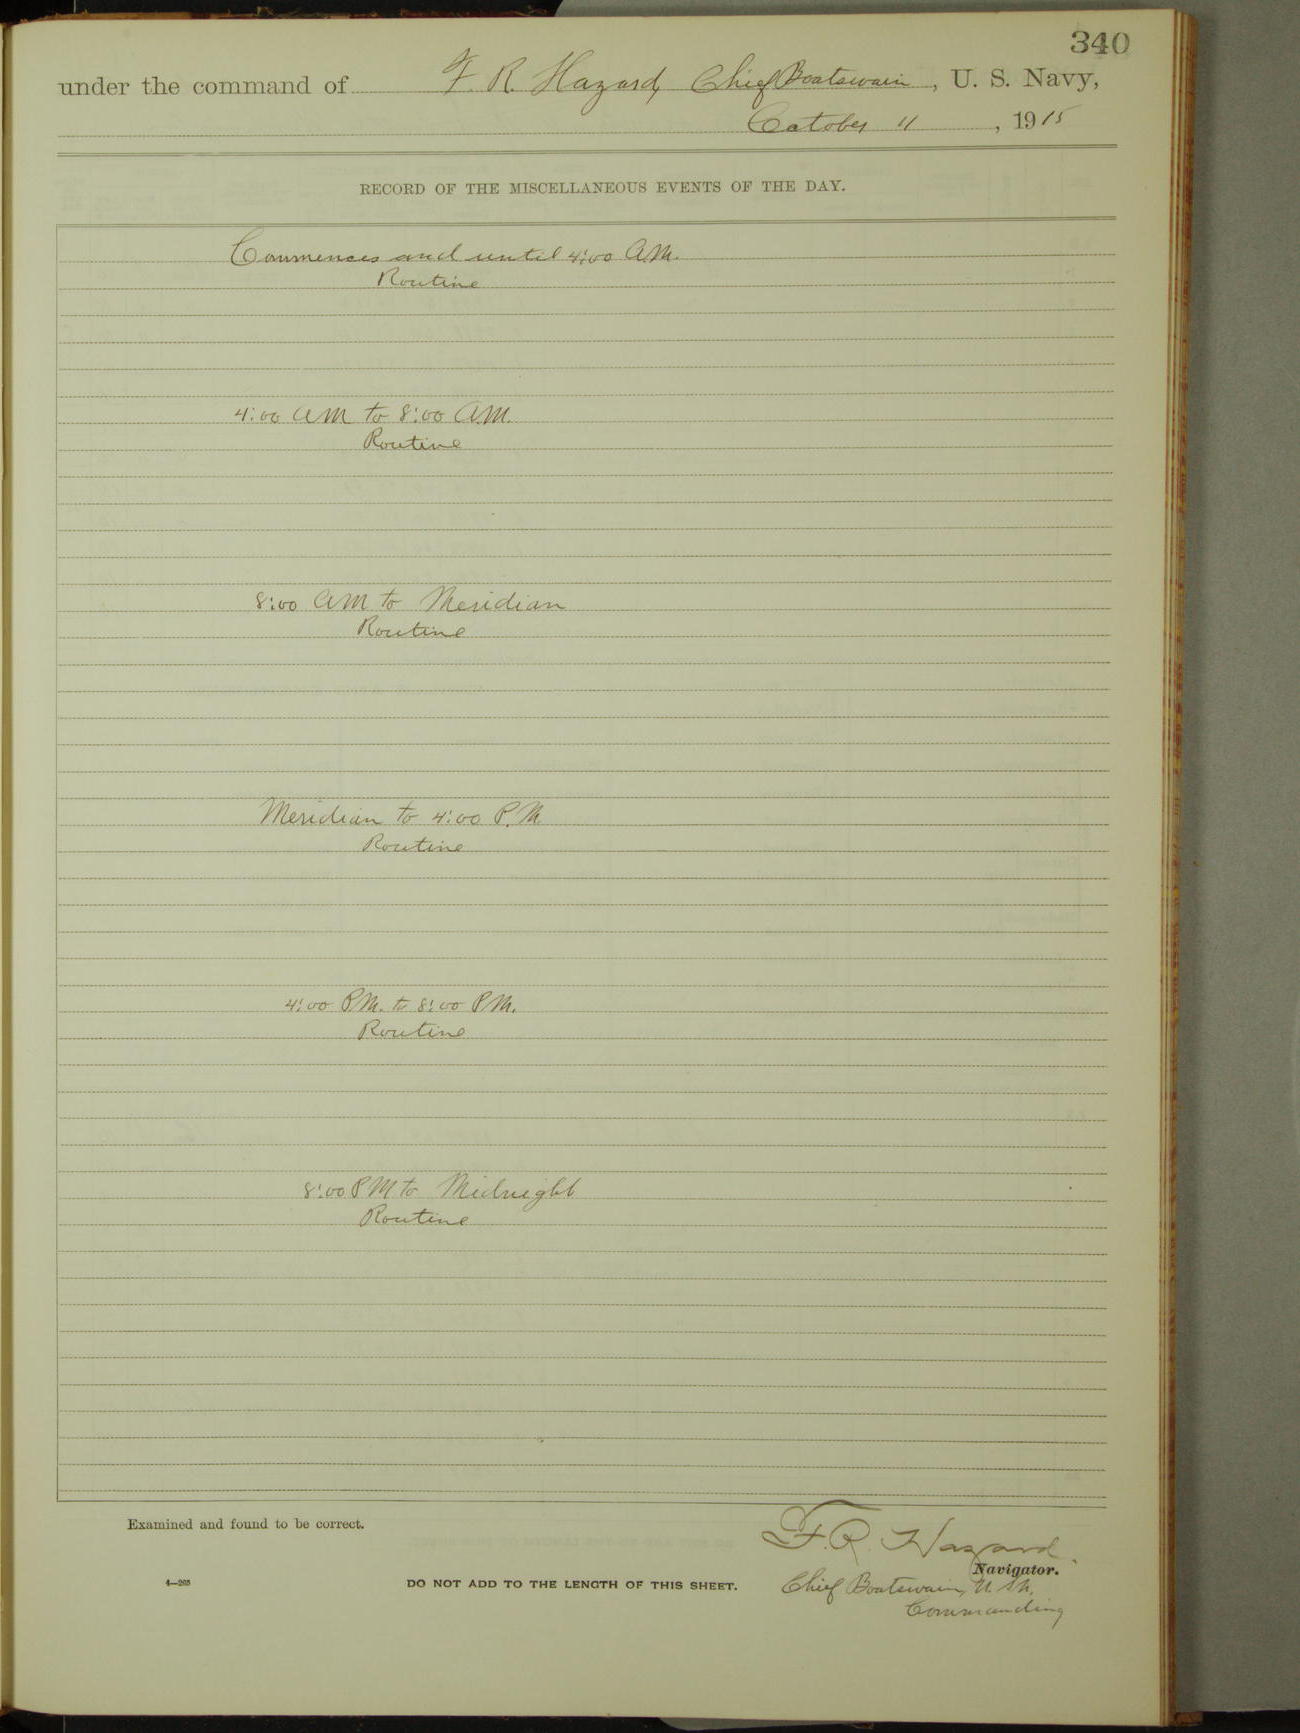 340
under the command of F. R. Hazard, Chief Boatswain, U. S. Navy,
October 11, 1915
RECORD OF THE MISCELLANEOUS EVENTS OF THE DAY.
Commences and until 4:00 A.M.
Routine
4:00 AM to 8:00 A.M.
Routine
8:00 AM to Meridian
Routine
Meridian to 4:00 P.M.
Routine
4:00 P.M. to 8:00 P.M.
Routine
8:00 PM to Midnight
Routine
Examined and found to be correct.
F. R. Hazard.
Navigator.
4—265 DO NOT ADD TO THE LENGTH OF THIS SHEET. Chief Boatswain, U.S.N.
Commanding